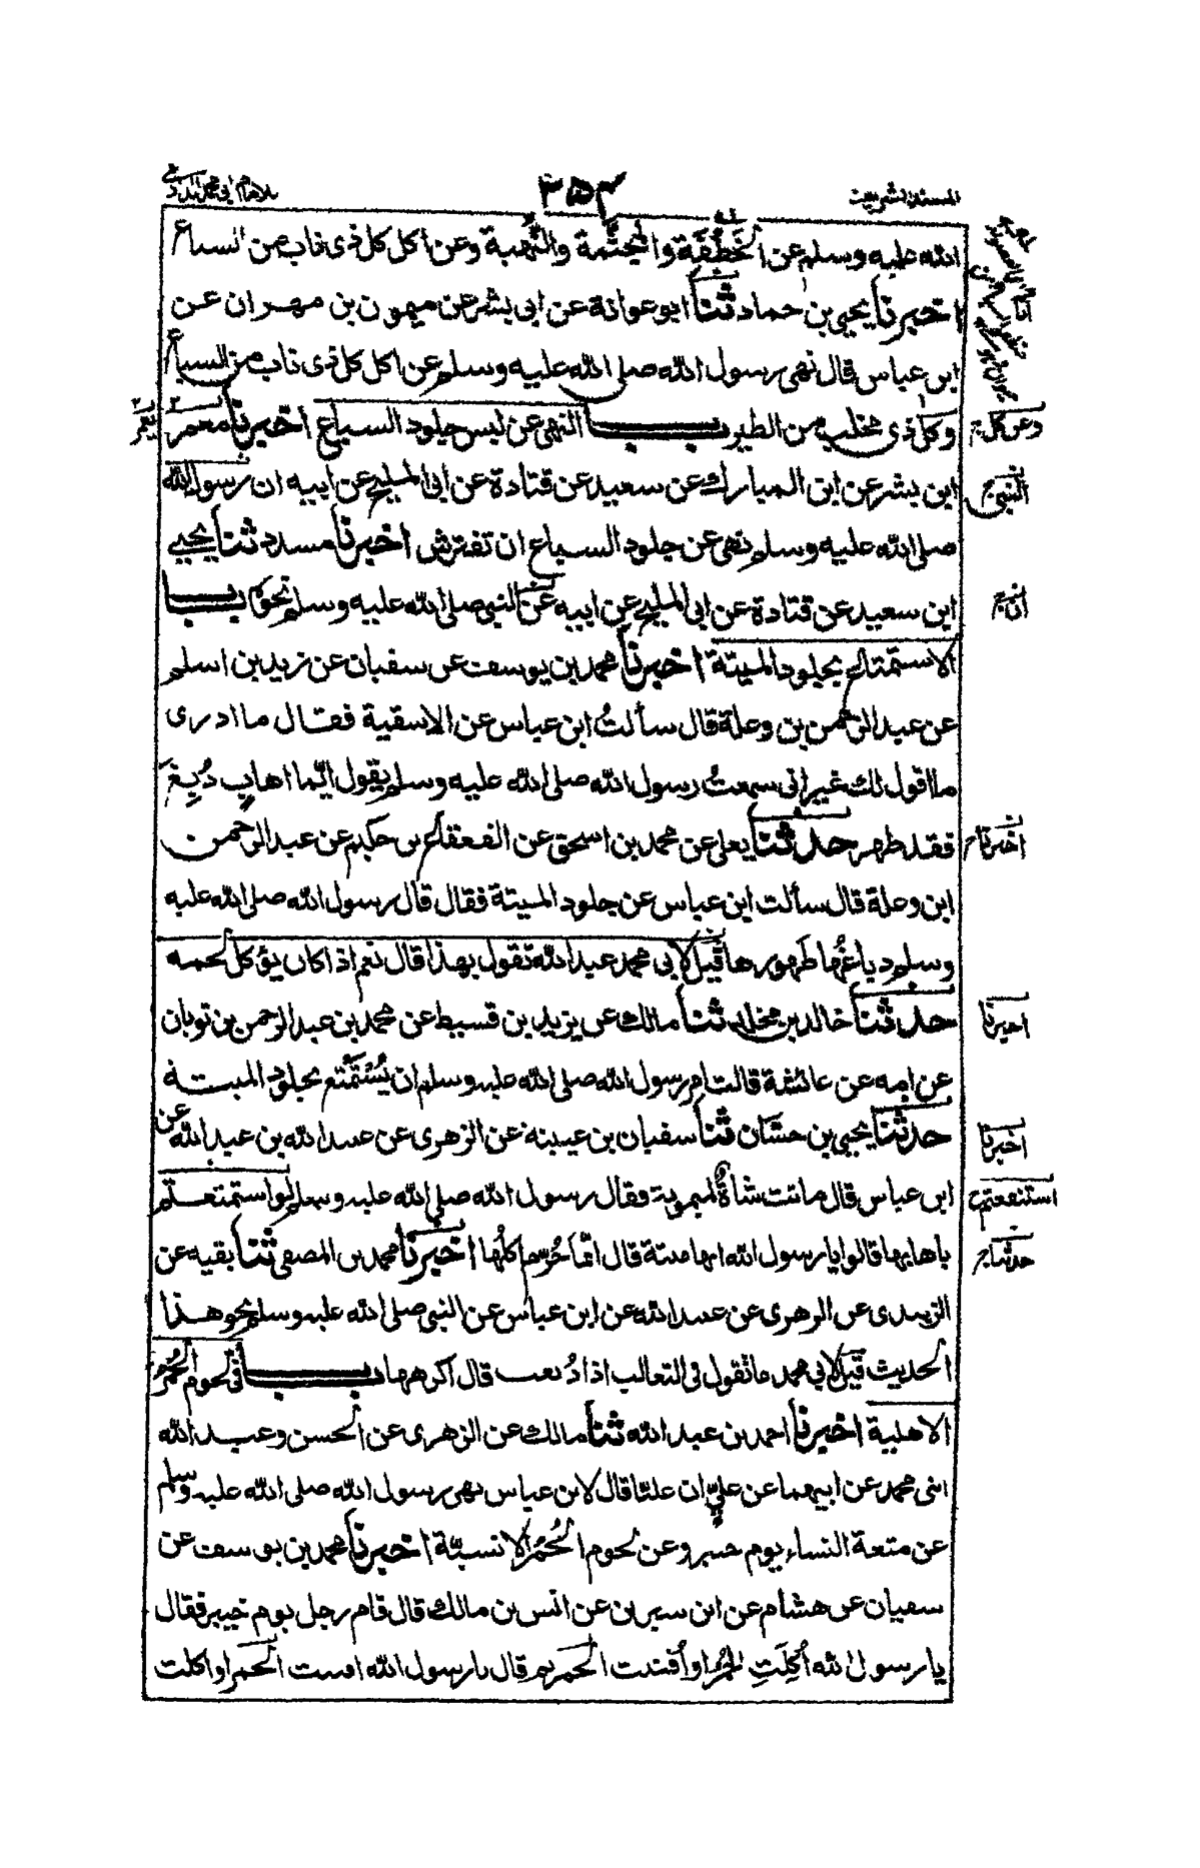 المسند الشريف
٢٥٤
للامام ابى محمد الدارمى
الله عليه وسلم عن الخَطْفَة والمجثَّمة والنُّهبة وعن اكل كل ذى ناب من السباع
اخبرنا يحيى بن حماد ثنا ابو عوانة عن ابى بشر عن ميمون بن مهران عن
ابن عباس قال نهى رسول الله صلى الله عليه وسلم عن اكل كل ذى ناب من السباع
وكل ذى مخلب من الطير بــــاب النهى عن لبس جلود السباع اخبرنا معمر
ابن بشر عن ابن المبارك عن سعيد عن قتادة عن ابى المليح عن ابيه ان رسول الله
صلى الله عليه وسلم نهى عن جلود السباع ان تفترش اخبرنا مسدد ثنا يحيى
ابن سعيد عن قتادة عن ابى المليح عن ابيه عن النبى صلى الله عليه وسلم نحوه بــاب
الاستمتاع بجلود الميتة اخبرنا محمد بن يوسف عن سفيان عن زيد بن اسلم
عن عبد الرحمن بن وعلة قال سألتُ ابن عباس عن الاسقية فقال ما ادرى
ما اقول لك غير انى سمعتُ رسول الله صلى الله عليه وسلم يقول ايّما اهابٍ دُبِغَ
فقد طهر حدثنا يعلى عن محمد بن اسحق عن القعقاع بن حكيم عن عبد الرحمن
ابن وعلة قال سألت ابن عباس عن جلود الميتة فقال قال رسول الله صلى الله عليه
وسلم دباغُها طهورها قيل لابى محمد عبد الله تقول بهذا قال نعم اذا كان يؤكل لحمه
حدثنا خالد بن مخلد ثنا مالك عن يزيد بن قسيط عن محمد بن عبد الرحمن بن ثوبان
عن امه عن عائشة قالت امر رسول الله صلى الله عليه وسلم ان يُسْتَمْتع بجلود الميتة
حدثنا يحيى بن حسّان ثنا سفيان بن عيينة عن الزهرى عن عبيد الله بن عبد الله عن
ابن عباس قال ماتت شاةٌ لميمونة فقال رسول الله صلى الله عليه وسلم لو استمتعتم
باهابها قالوا يا رسول الله انها ميتة قال انّما حُرّم اكلُها اخبرنا محمد بن المصفى ثنا بقيه عن
الزبيدى عن الزهرى عن عبيد الله عن ابن عباس عن النبى صلى الله عليه وسلم نحو هذا
الحديث قيل لابى محمد ما تقول فى الثعالب اذا دُبغت قال اكرهها بــــاب فى لحوم الحُمُر
الاهلية اخبرنا احمد بن عبد الله ثنا مالك عن الزهرى عن الحسن وعبد الله
ابنى محمد عن ابيهما عن علىّ ان عليًّا قال لابن عباس نهى رسول الله صلى الله عليه وسلم
عن متعة النساء يوم خيبر وعن لحوم الحُمُر الانسيّة اخبرنا محمد بن يوسف عن
سفيان عن هشام عن ابن سيرين عن انس بن مالك قال قام رجل يوم خيبر فقال
يا رسول الله أُكِلَتِ الحُمُر او أُفنيت الحمر ثم قال يا رسول الله افنيت الحمر او اكلت
وعن كل
النبى
ان
اخبرنا
اخبرنا
اخبرنا
استنفعتم
حدثنا
يعمر